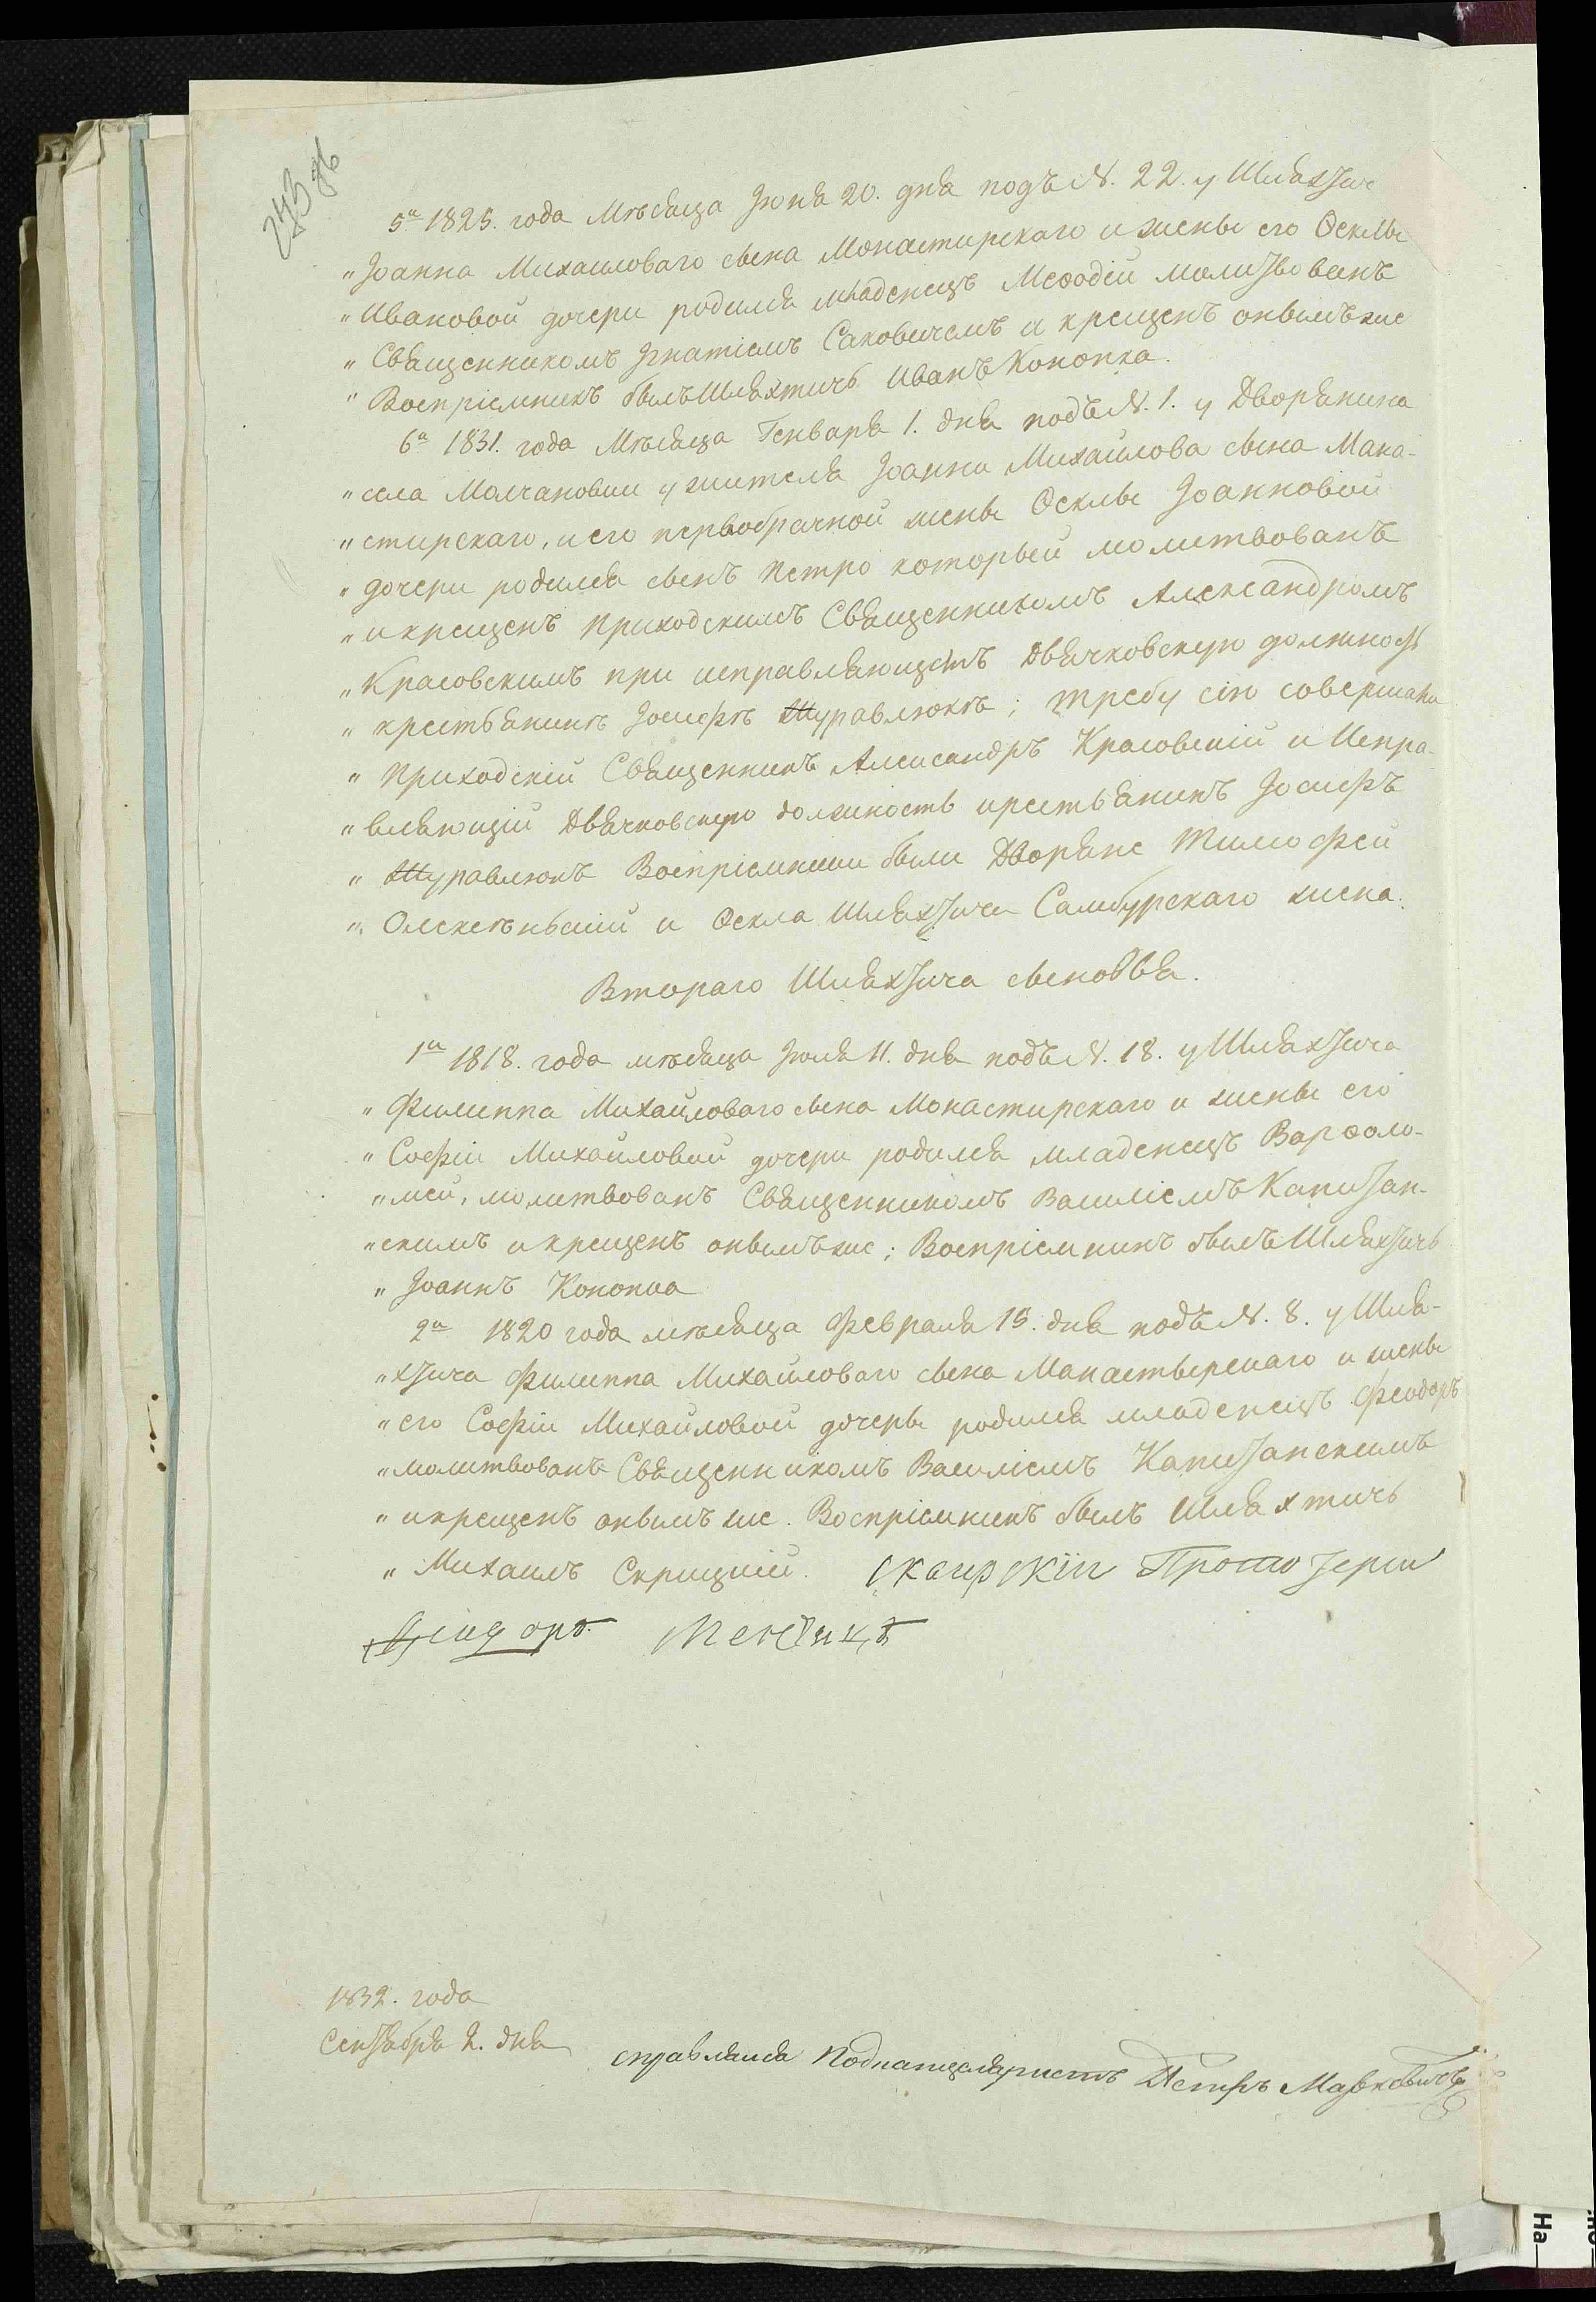 243 об
5<sup>а</sup> 1825. года Мѣсяца Іюня 20. дня подъ N. 22. у Шляхтич
„Іоанна Михаиловаго сына Монастирскаго и жены его Ѳеклы
„Ивановой дочери родился младенецъ Меѳодій молитвованъ
„Священникомъ Игнатіемъ Саковичемъ и крещенъ онымъ же
„Воспріемникъ былъ Шляхтичъ Иванъ Конопка.
6<sup>а</sup> 1831. года Мѣсяца Генваря 1. дня подъ N. 1. у Дворянина
„села Молчановки у жителя Іоанна Михайлова сына Мана-
„стирскаго, и его первобрачной жены Ѳеклы Іоанновой
„дочери родился сынъ Петро который молитвованъ
„и крещенъ приходскимъ Священникомъ Александромъ
„Красовскимъ при исправляющемъ Дьячковскую должность
„крестьянинѣ Іосифѣ Журавлюкѣ; требу сію совершали
„Приходскій Священникъ Александръ Красовскій и Испра-
„вляющій Дьячковскую должность крестьянинъ Іосифъ
„Журавлюкъ Воспріемники были Дворяне Тимофей
„и Ѳекла Шляхтича Самбурскаго жена.
Втораго Шляхтича сыновья.
1<sup>й</sup> 1818. года мѣсяца Іюля 11. дня подъ N. 18. у Шляхтича
„Филиппа Михайловаго сына Монастирскаго и жены его
„Софіи Михайловой дочери родился младенецъ Варѳоло-
„мей, молитвованъ Священникомъ Василіемъ Капитан-
„скимъ и крещенъ онымъ же; Воспріемникъ былъ Шляхтичъ
„Іоаннъ Конопка
2<sup>й</sup> 1820 года мѣсяца Февраля 15. дня подъ N. 8. у Шля-
„хтича Филиппа Михайловаго сына Манастырскаго и жены
„его Софіи Михайловой дочеры родился младенецъ Феодоръ
„молитвованъ Священникомъ Василіемъ Капитанскимъ
„и крещенъ онымъ же. Воспріемникъ былъ Шляхтичъ
„Михаилъ Скрицкій. Протоіерей
1832. года
Сентября 2. дня
справлялся Подканцеляристъ Петръ Марковичъ